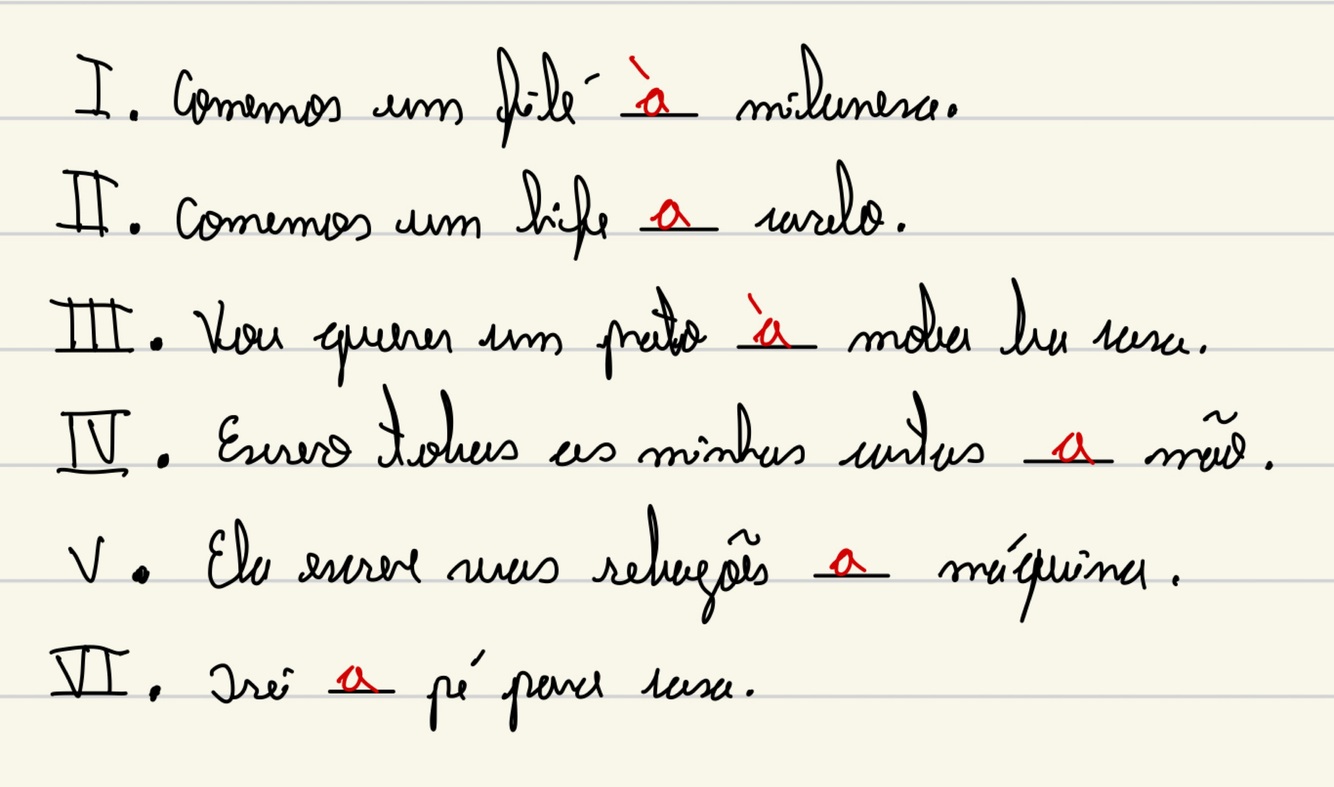 I. Comemos um filé à milanesa.
II. Comemos um bife a cavalo.
III. Vou querer um prato à moda da casa.
IV. Escrevo todas as minhas cartas a mão.
V. Ela escreve suas redações a máquina.
VI. Irei a pé para casa.